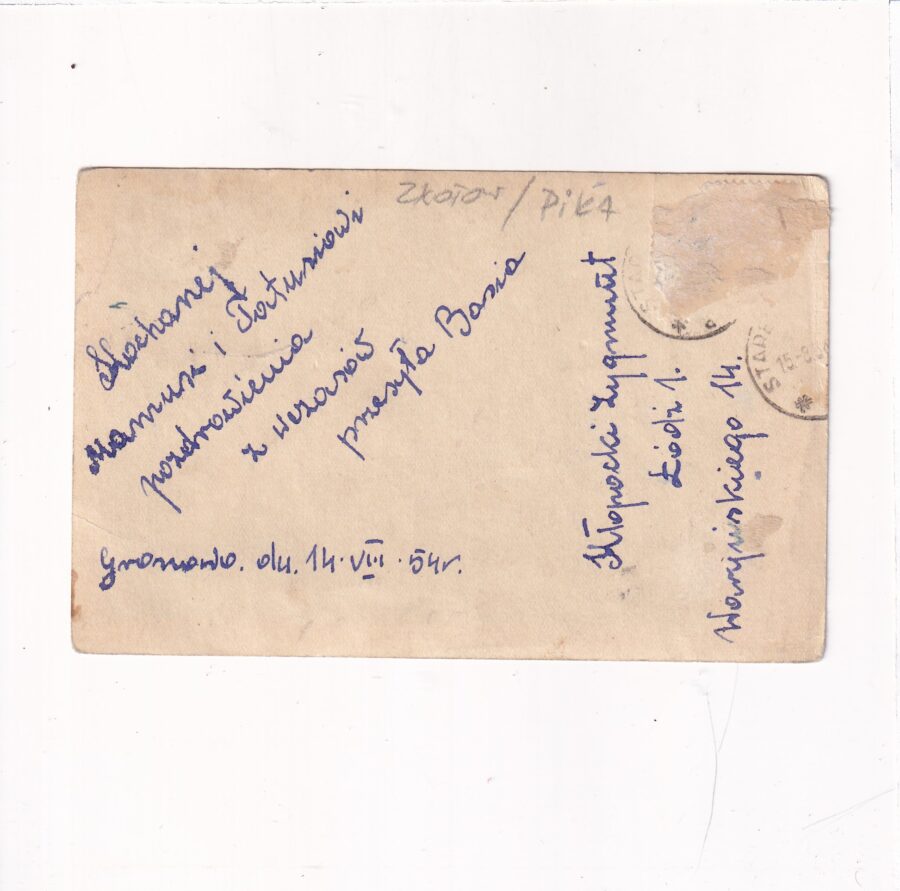 Złotow / Piła
Kochanej
Mamusi i Tatusiowi
pozdrowienia
z wczasów
przesyła Basia
Gromowo. dn. 14.VIII.54r.
Kłopocki Zygmunt
Łódź 1.
14.
STAR
STAR
15-8